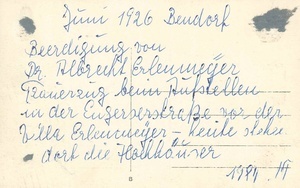 Juni 1926 Bendorf
Beerdigung von
Dr. Albrecht Erlenmeyer
Trauerzug beim Aufstellen
in der Engerserstraße vor der
Villa Erlenmeyer - heute stehen
dort die Hochhäuser
1984